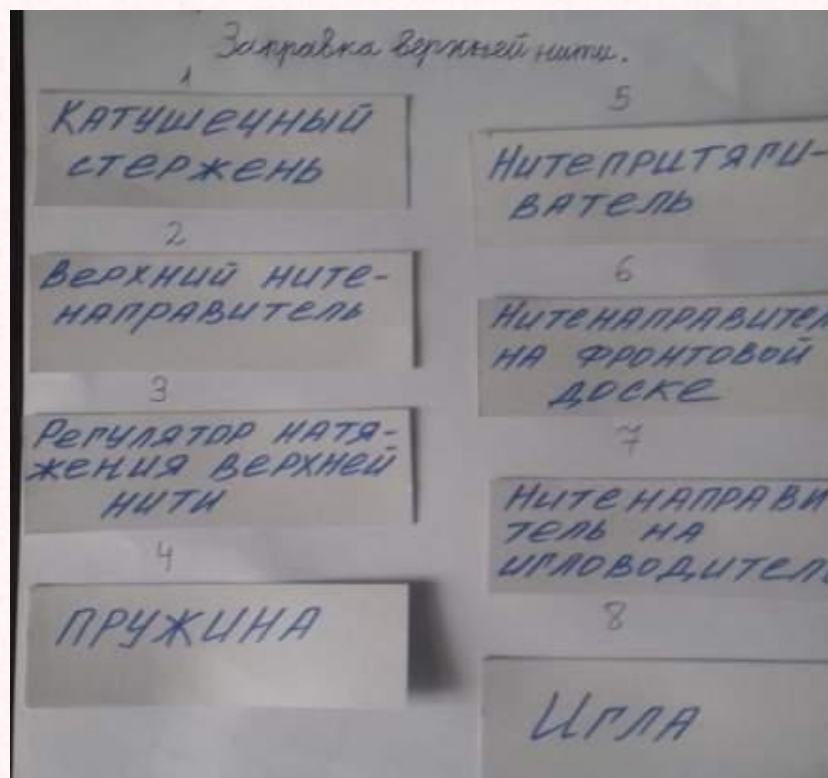 Заправка верхней нити.
1
Катушечный
стержень
2
Верхний ните-
направитель
3
Регулятор натя-
жения верхней
нити
4
Пружина
5
Нитепритяги-
ватель
6
Нитенаправител
на фронтовой
доске
7
Нитенаправи
тель на
игловодител
8
Игла